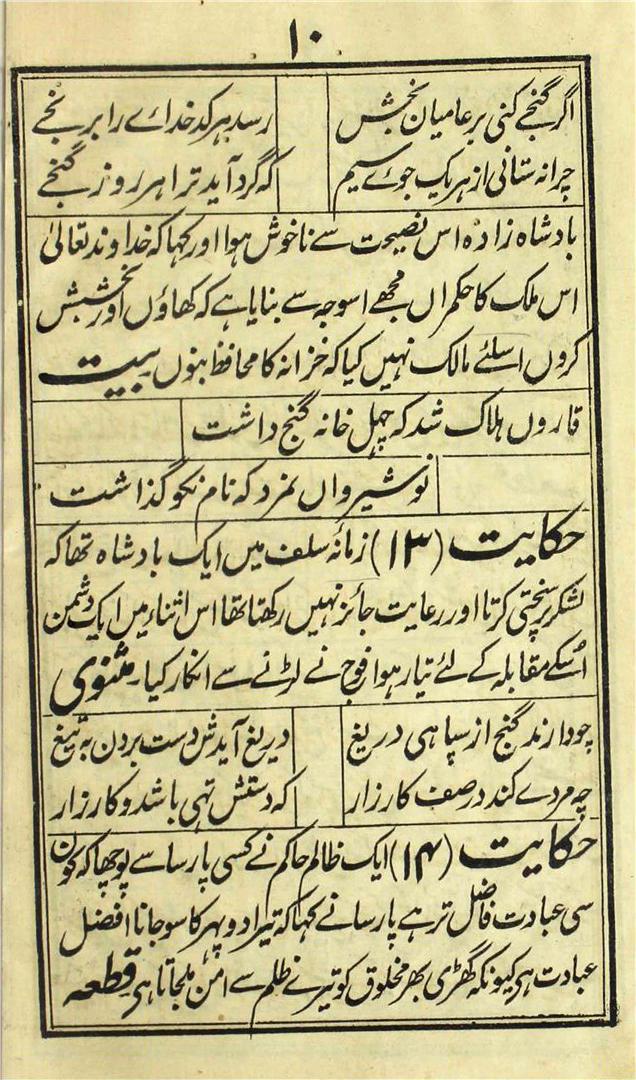 ۱۰
اگر گنجے کنی بر عامیان بخش رسد ہر کد خداے را برنجے
چرا نہ ستانی از ہر یک جوے سیم کہ گرد آید ترا ہر روز گنجے
بادشاہ زادہ اس نصیحت سے ناخوش ہوا اور کہا کہ خداوند تعالیٰ
اس ملک کا حکمراں مجھے اسوجہ سے بنایا ہے کہ کھاؤں اور بخشش
کروں اسلئے مالک نہیں کیا کہ خزانہ کا محافظ بنوں۔ بیت
قاروں ہلاک شد کہ چہل خانہ گنج داشت
نوشیرواں نمرد کہ نام نکو گذاشت
حکایت (۱۳) زمانۂ سلف میں ایک بادشاہ تھا کہ
لشکر پر سختی کرتا اور رعایت جائز نہیں رکھتا تھا اس اثناء میں ایک دشمن
اُسکے مقابلہ کے لئے تیار ہوا فوج نے لڑنے سے انکار کیا۔ مثنوی
چو دارند گنج از سپاہی دریغ دریغ آیدش دست بردن بہ تیغ
چہ مردے کند در صف کارزار کہ دستش تہی باشد و کارزار
حکایت (۱۴) ایک ظالم حاکم نے کسی پارسا سے پوچھا کہ کون
سی عبادت فاضل تر ہے پارسا نے کہا کہ تیرا دوپہر کا سو جانا افضل
عبادت ہی کیونکہ گھڑی بھر مخلوق کو تیرے ظلم سے امن ملجاتا ہی۔ قطعہ